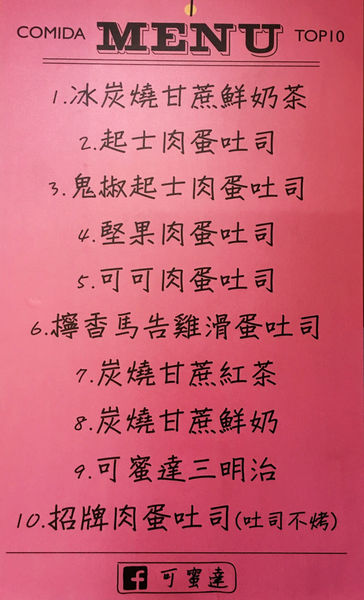 COMIDA MENU TOP10
1.冰炭燒甘蔗鮮奶茶
2.起士肉蛋吐司
3.鬼椒起士肉蛋吐司
4.堅果肉蛋吐司
5.可可肉蛋吐司
6.檸香馬告雞滑蛋吐司
7.炭燒甘蔗紅茶
8.炭燒甘蔗鮮奶
9.可蜜達三明治
10.招牌肉蛋吐司(吐司不烤)
f 可蜜達